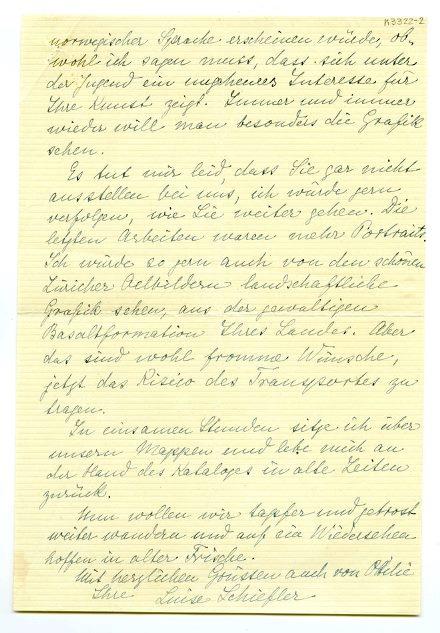 K3322-2
norwegischer Sprache erscheinen würde, ob-
wohl ich sagen muss, dass sich unter
der Jugend ein ungeheures Interesse für
Ihre Kunst zeigt. Immer und immer
wieder will man besonders die Grafik
sehen.
Es tut mir leid, dass Sie gar nicht
ausstellen bei uns, ich würde gern
verfolgen, wie Sie weiter gehen. Die
letzten Arbeiten waren mehr Portraits.
Ich würde so gern auch von den schönen
Züricher Oelbildern landschaftliche
Grafik sehen, aus der gewaltigen
Basaltformation Ihres Landes. Aber
das sind wohl fromme Wünsche,
jetzt das Risico des Transportes zu
tragen.
In einsamen Stunden sitze ich über
unsern Mappen und lebe mich an
der Hand des Kataloges in alte Zeiten
zurück.
Nun wollen wir tapfer und getrost
weiter wandern und auf ein Wiedersehen
hoffen in alter Frische.
Mit herzlichen Grüssen auch von Ottilie
Ihre Luise Schiefler